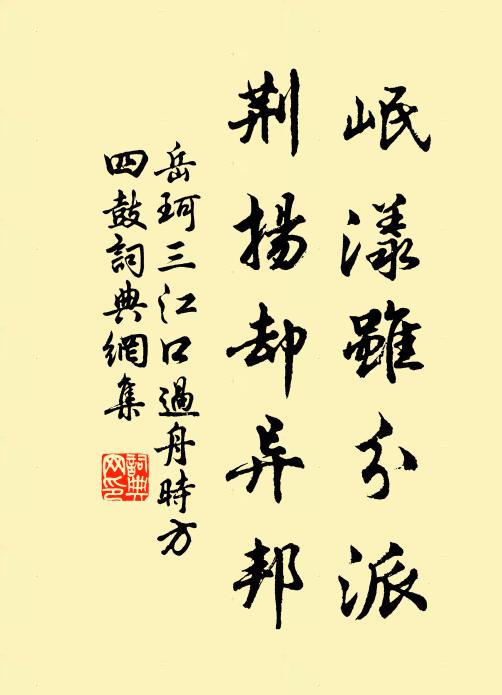 岷漾雖分派
荆揚却异邦
岳珂三江口過舟時方
四鼓詞典網集
詞典
网印